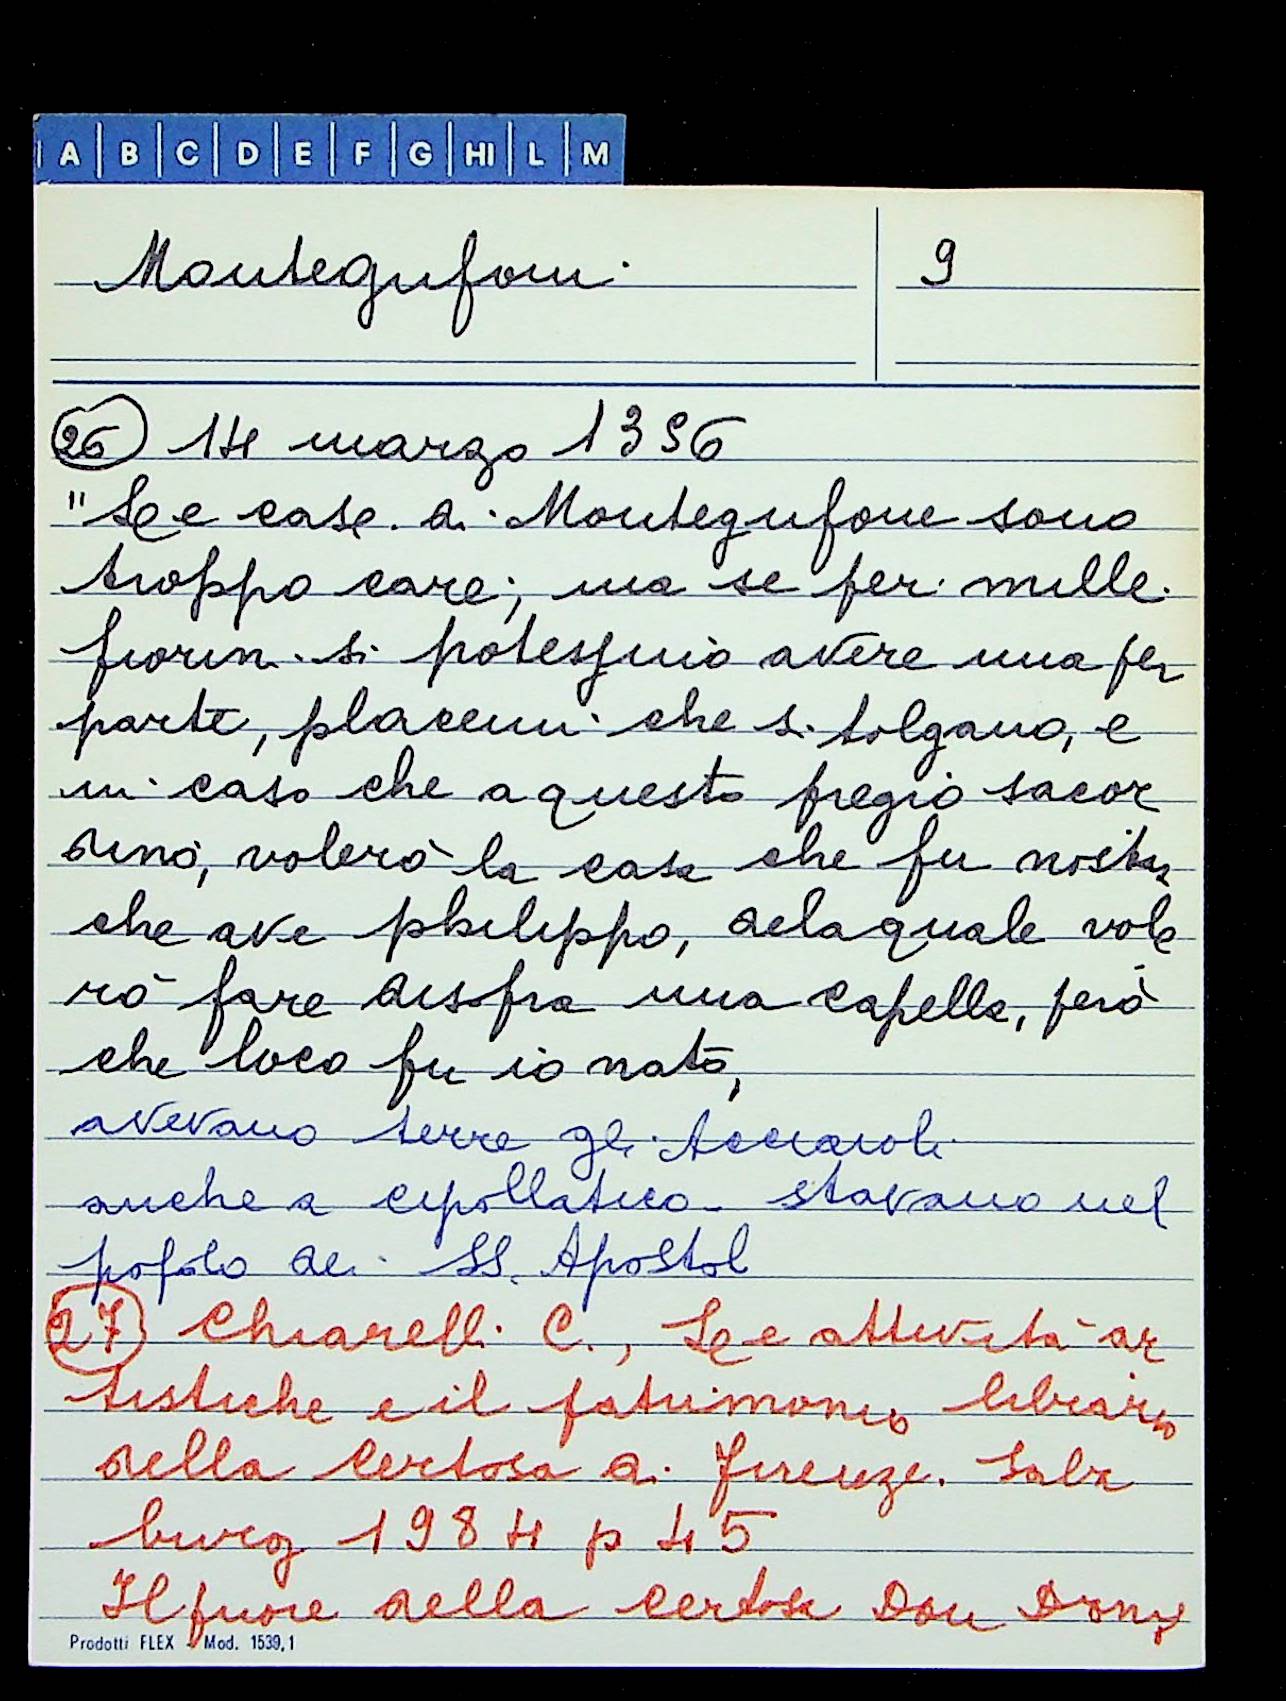 A B C D E F G HI L M
Montegufoni 9
26 14 marzo 1356
"Le case di Montegufone sono
troppo care; ma se per mille
fiorin si potessino avere una per
parte, placemi che si tolgano, e
in caso che a questo pregio sacor
dino, volerò la casa che fu nostra
che ave philippo, dela quale vole
rò fare disopra una capella, però
che loco fu io nato,
avevano terre gli Acciaioli
anche a cipollatico - stavano nel
popolo dei SS. Apostol
27 Chiarelli C., Le attività ar
tistiche e il patrimonio librario
della certosa di Firenze. Salz
burg 1984 p 45
Il priore della certosa Don
Prodotti FLEX - Mod. 1539,1